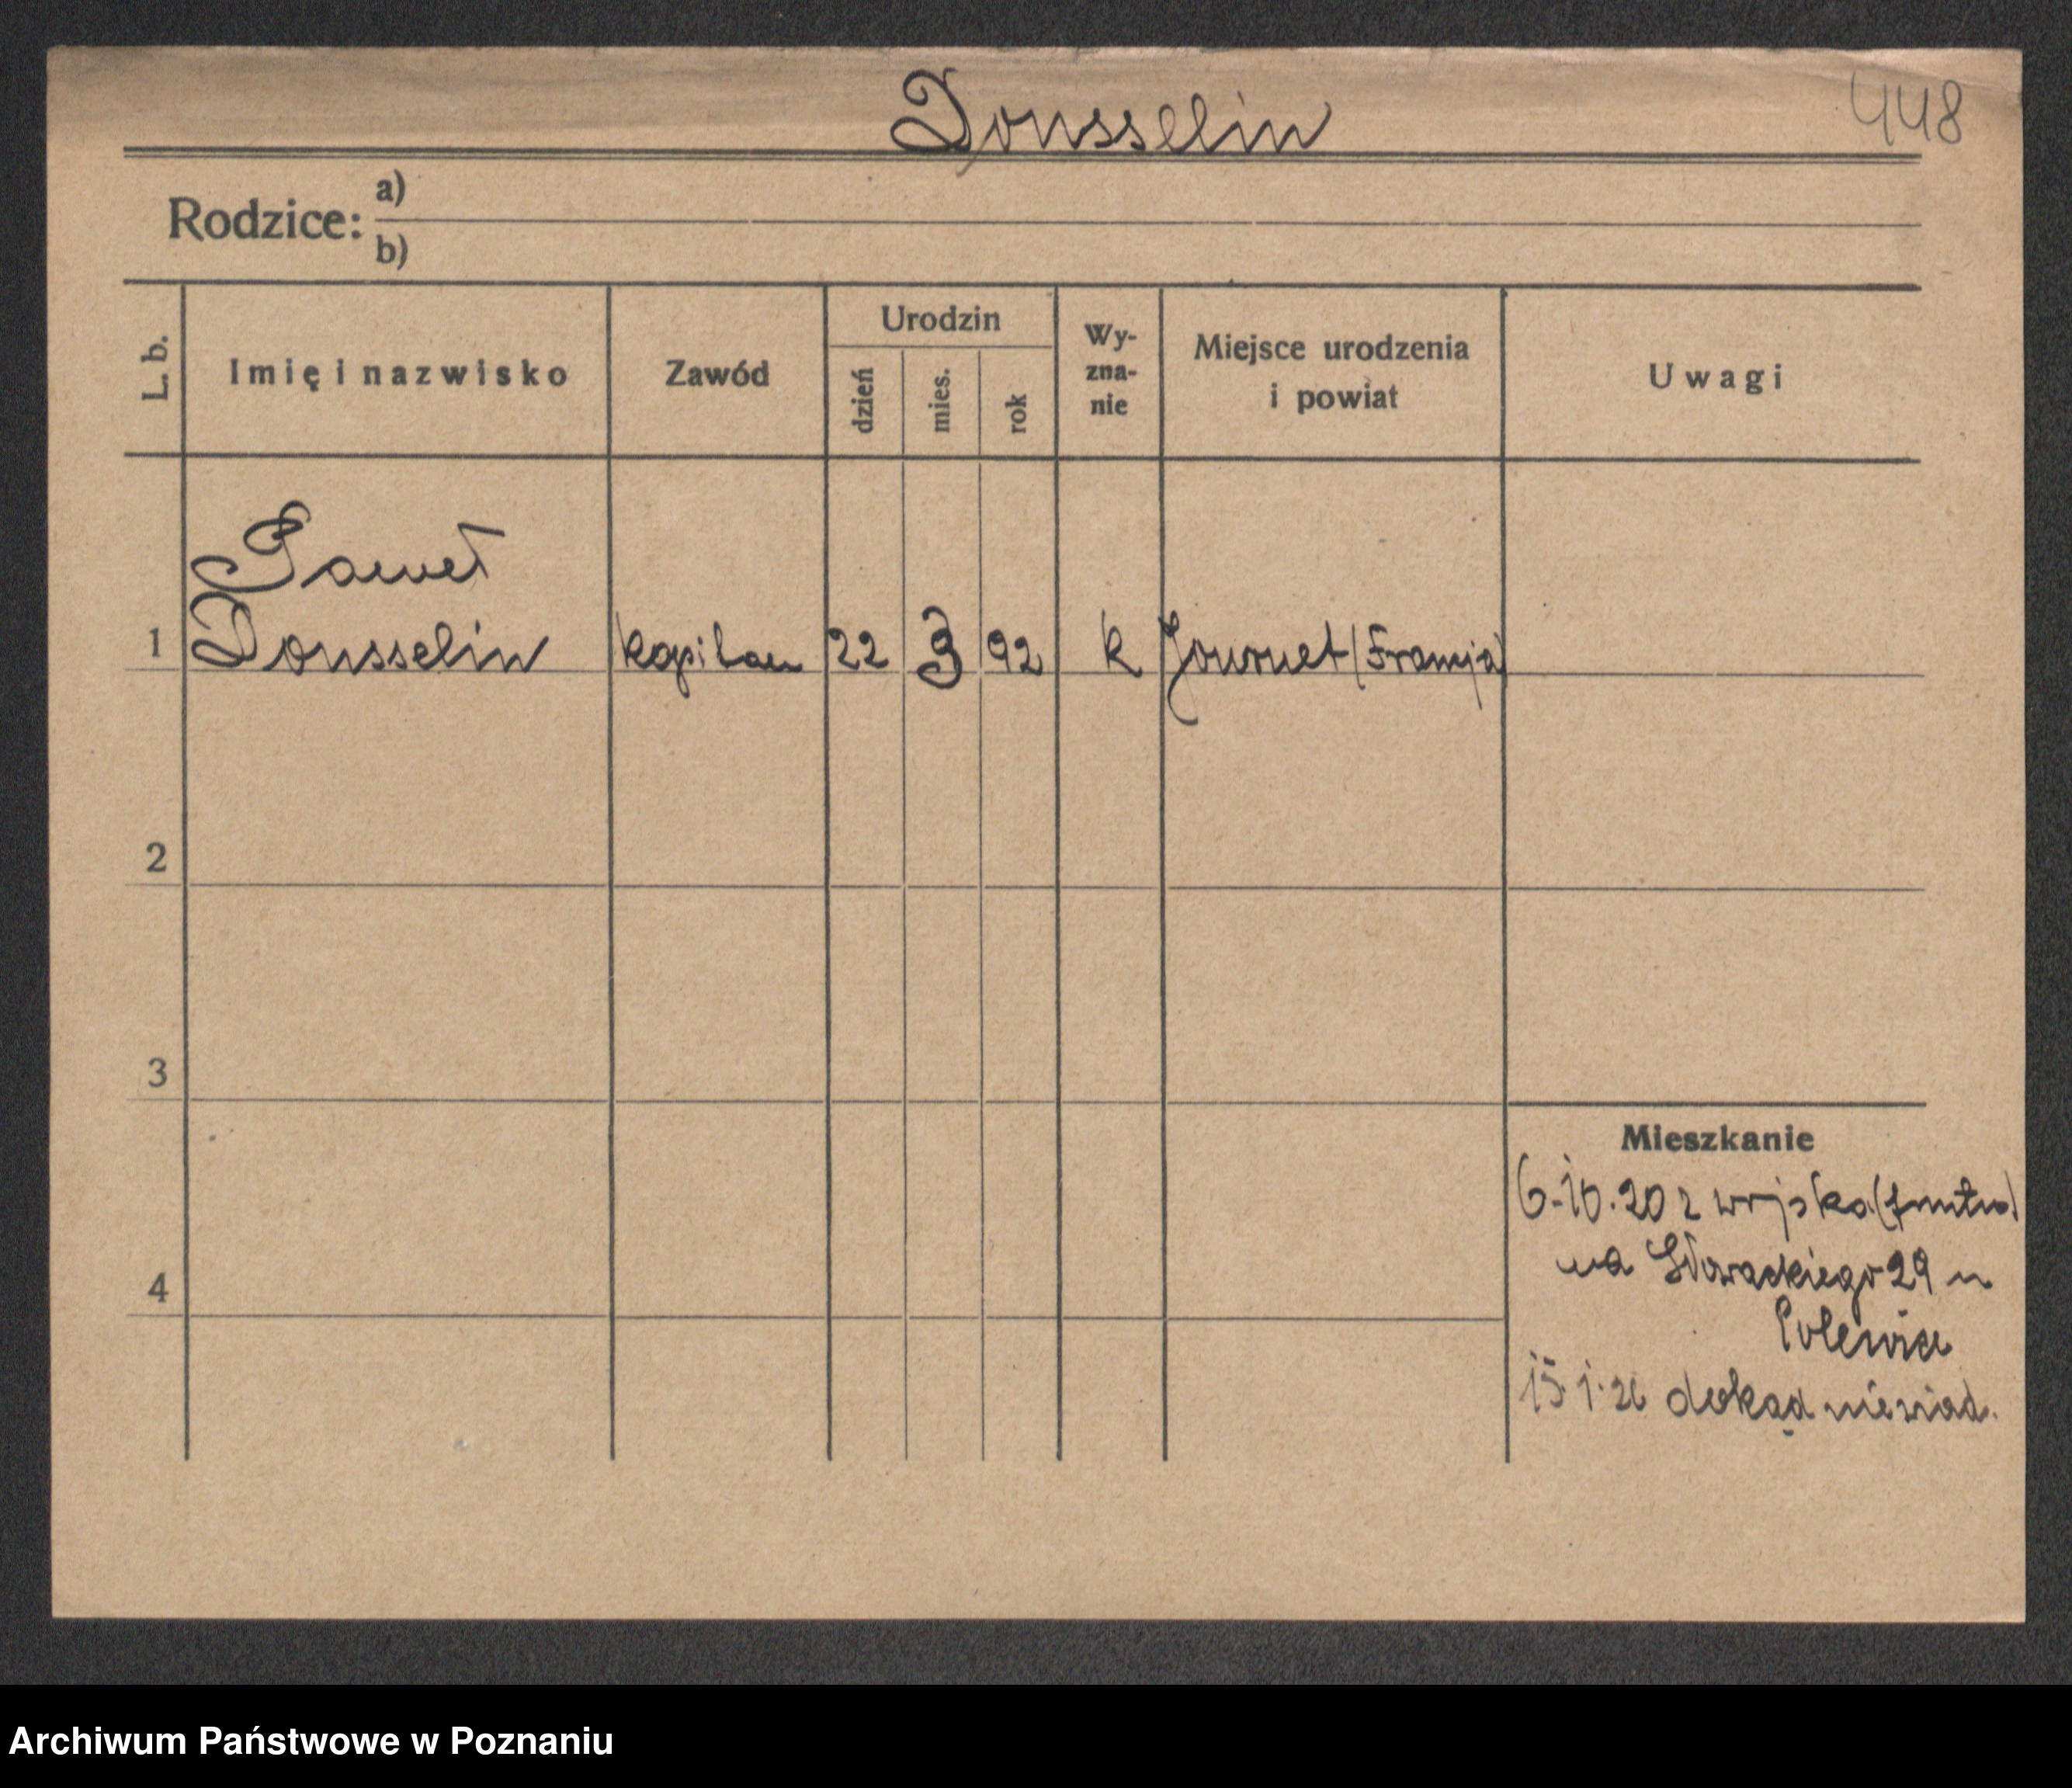 Dousselin 448
Rodzice: a)
b)
L. b. Imię i nazwisko Zawód Urodzin dzień mies. rok Wy-zna-nie Miejsce urodzenia i powiat Uwagi
Paweł
1 Dousselin kapitan 22 3 92 k Journet (Francja)
2
3
Mieszkanie
6.10.20 z wojska
4 na Słowackiego 29 u
15.1.26 dokąd niewiad.
Archiwum Państwowe w Poznaniu